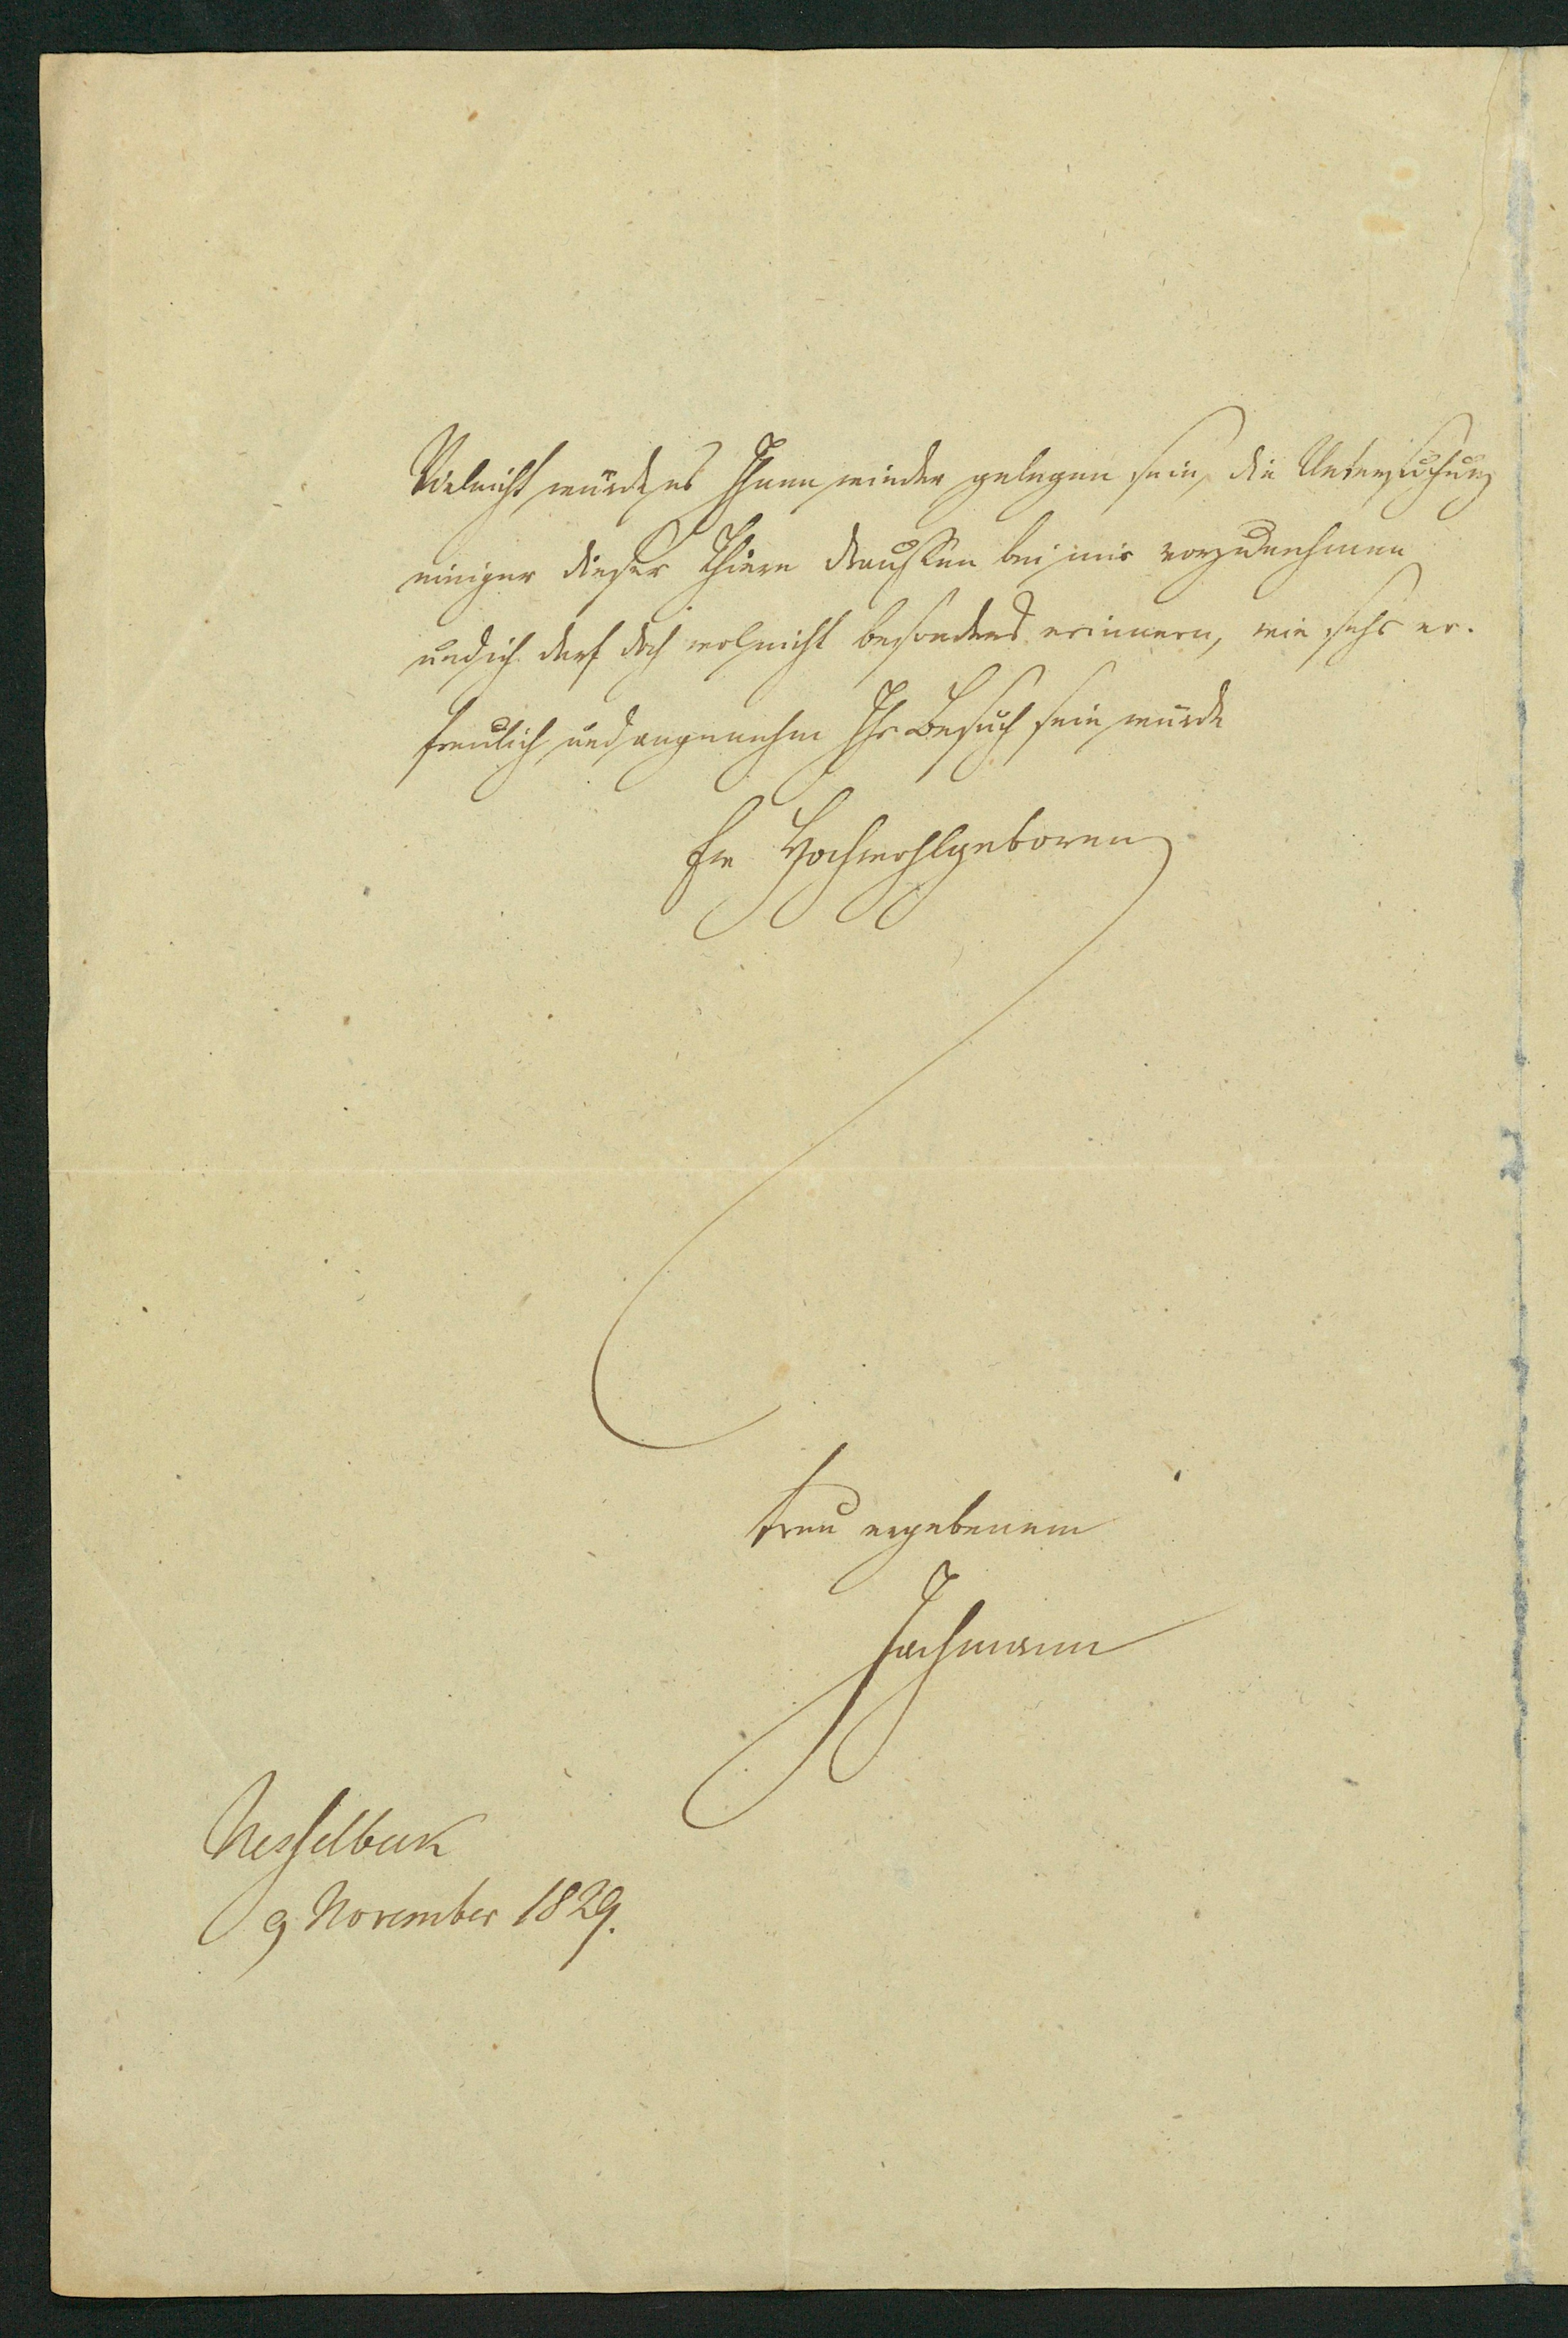 Vieleicht würde es Ihnen wieder gelegen sein, die Untersuchung
einiger dieser Thiere draussen bei mir vorzunehmen
und ich darf doch wol nicht besonders erinnern, wie sehr er-
freulich und angenehm Ihr Besuch sein würde
Ew Hochwohlgeboren
treu ergebenem
Jachmann
Nesselbek
9 November 1829.